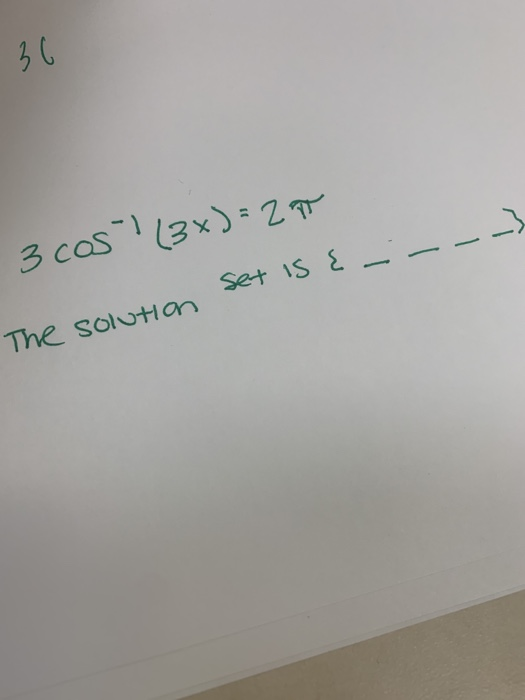 36
3 cos⁻¹ (3x) = 2π
The solution set is { _ _ _ _ }